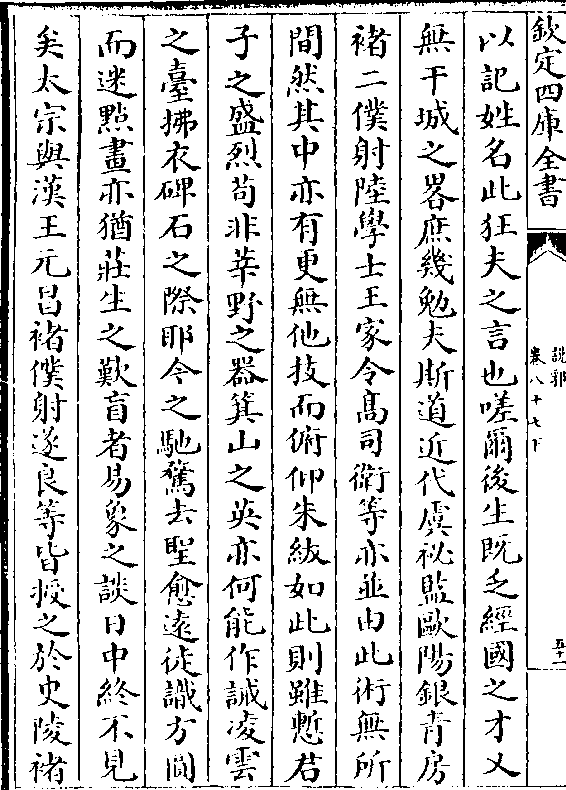 欽定四庫全書
說郛
卷八十七下
以記姓名此狂夫之言也嗟爾後生既乏經國之才又
無干城之畧庶幾勉夫斯道近代虞祕監歐陽銀青房
褚二僕射陸學士王家令高司衛等亦並由此術無所
間然其中亦有更無他技而俯仰朱紱如此則雖慙君
子之盛烈苟非莘野之器箕山之英亦何能作誡凌雲
之臺拂衣碑石之際耶今之馳騖去聖愈遠徒識方圓
而迷點畫亦猶莊生之歎盲者易象之談日中終不見
矣太宗與漢王元昌褚僕射遂良等皆授之於史陵褚